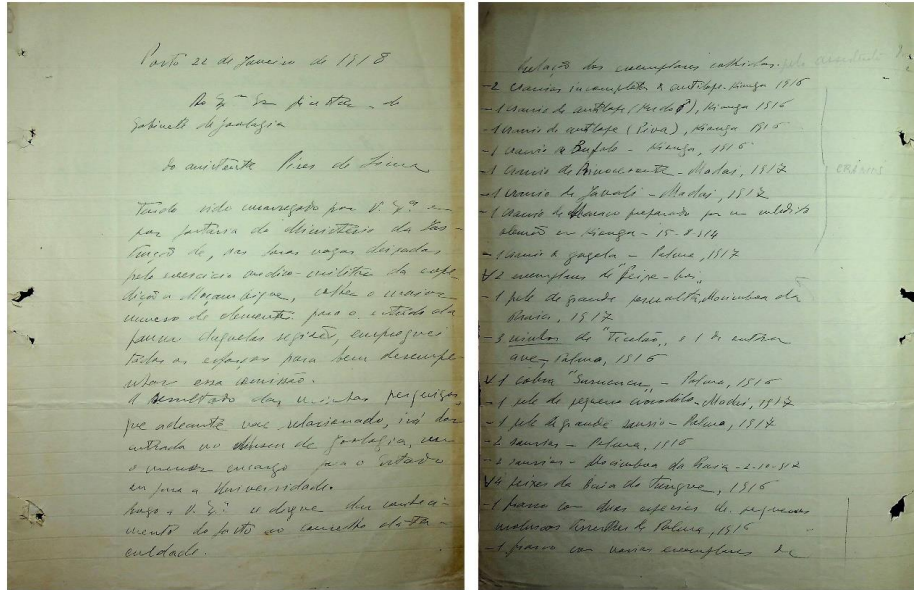 Porto 22 de Janeiro de 1918
Ao Exmo Snr Director do
Gabinete de Zoologia
Do assistente Pires de Lima
Tendo sido encarregado por V. Exa. e
por portaria do Ministério da Ins-
trução de, nas horas vagas deixadas
pelo exercício médico-militar da expe-
dição a Moçambique, colher o maior
numero de elementos para o estudo da
fauna daquelas regiões, empreguei
todos os esforços para bem desempe-
nhar essa comissão.
O resultado das minhas pesquizas,
que adeante vae relacionado, irá dar
entrada no Museu de Zoologia, sem
o menor encargo para o Estado
ou para a Universidade.
Rogo a V. Exa. se digne dar conheci-
mento do facto ao conselho da Fa-
culdade.
Relação dos exemplares colhidos pelo assistente
- 2 craneos incompletos de antilope. Kionga 1916
- 1 craneo de antilope, Kionga 1916
- 1 craneo de antilope (Piva), Kionga 1916
- 1 craneo de Bufalo - Kionga, 1916
- 1 craneo de - Madai, 1917
- 1 craneo de Javali - Madai, 1917
- 1 craneo de Macaco preparado por um médico
alemão em Kionga - 15-8-914
- 1 craneo de gazela - Palma, 1917
2 exemplares de "Peixe-boi"
- 1 pele de grande, Mocimboa da
Praia, 1917
- 3 ninhos de "Tecelão" e 1 de outra
ave, Palma, 1916
1 cobra "Surucucu" - Palma, 1916
- 1 pele de pequeno crocodilo - Madai, 1917
- 1 pele de grande saurio - Palma, 1917
- 2 saurios - Palma, 1916
- 2 saurios - Mocimboa da Praia - 2-10-917
4 peixes da Baía de Tungue, 1916
- 1 frasco com duas especies de pequenos
moluscos terrestres de Palma, 1916
- 1 frasco com varios exemplares de